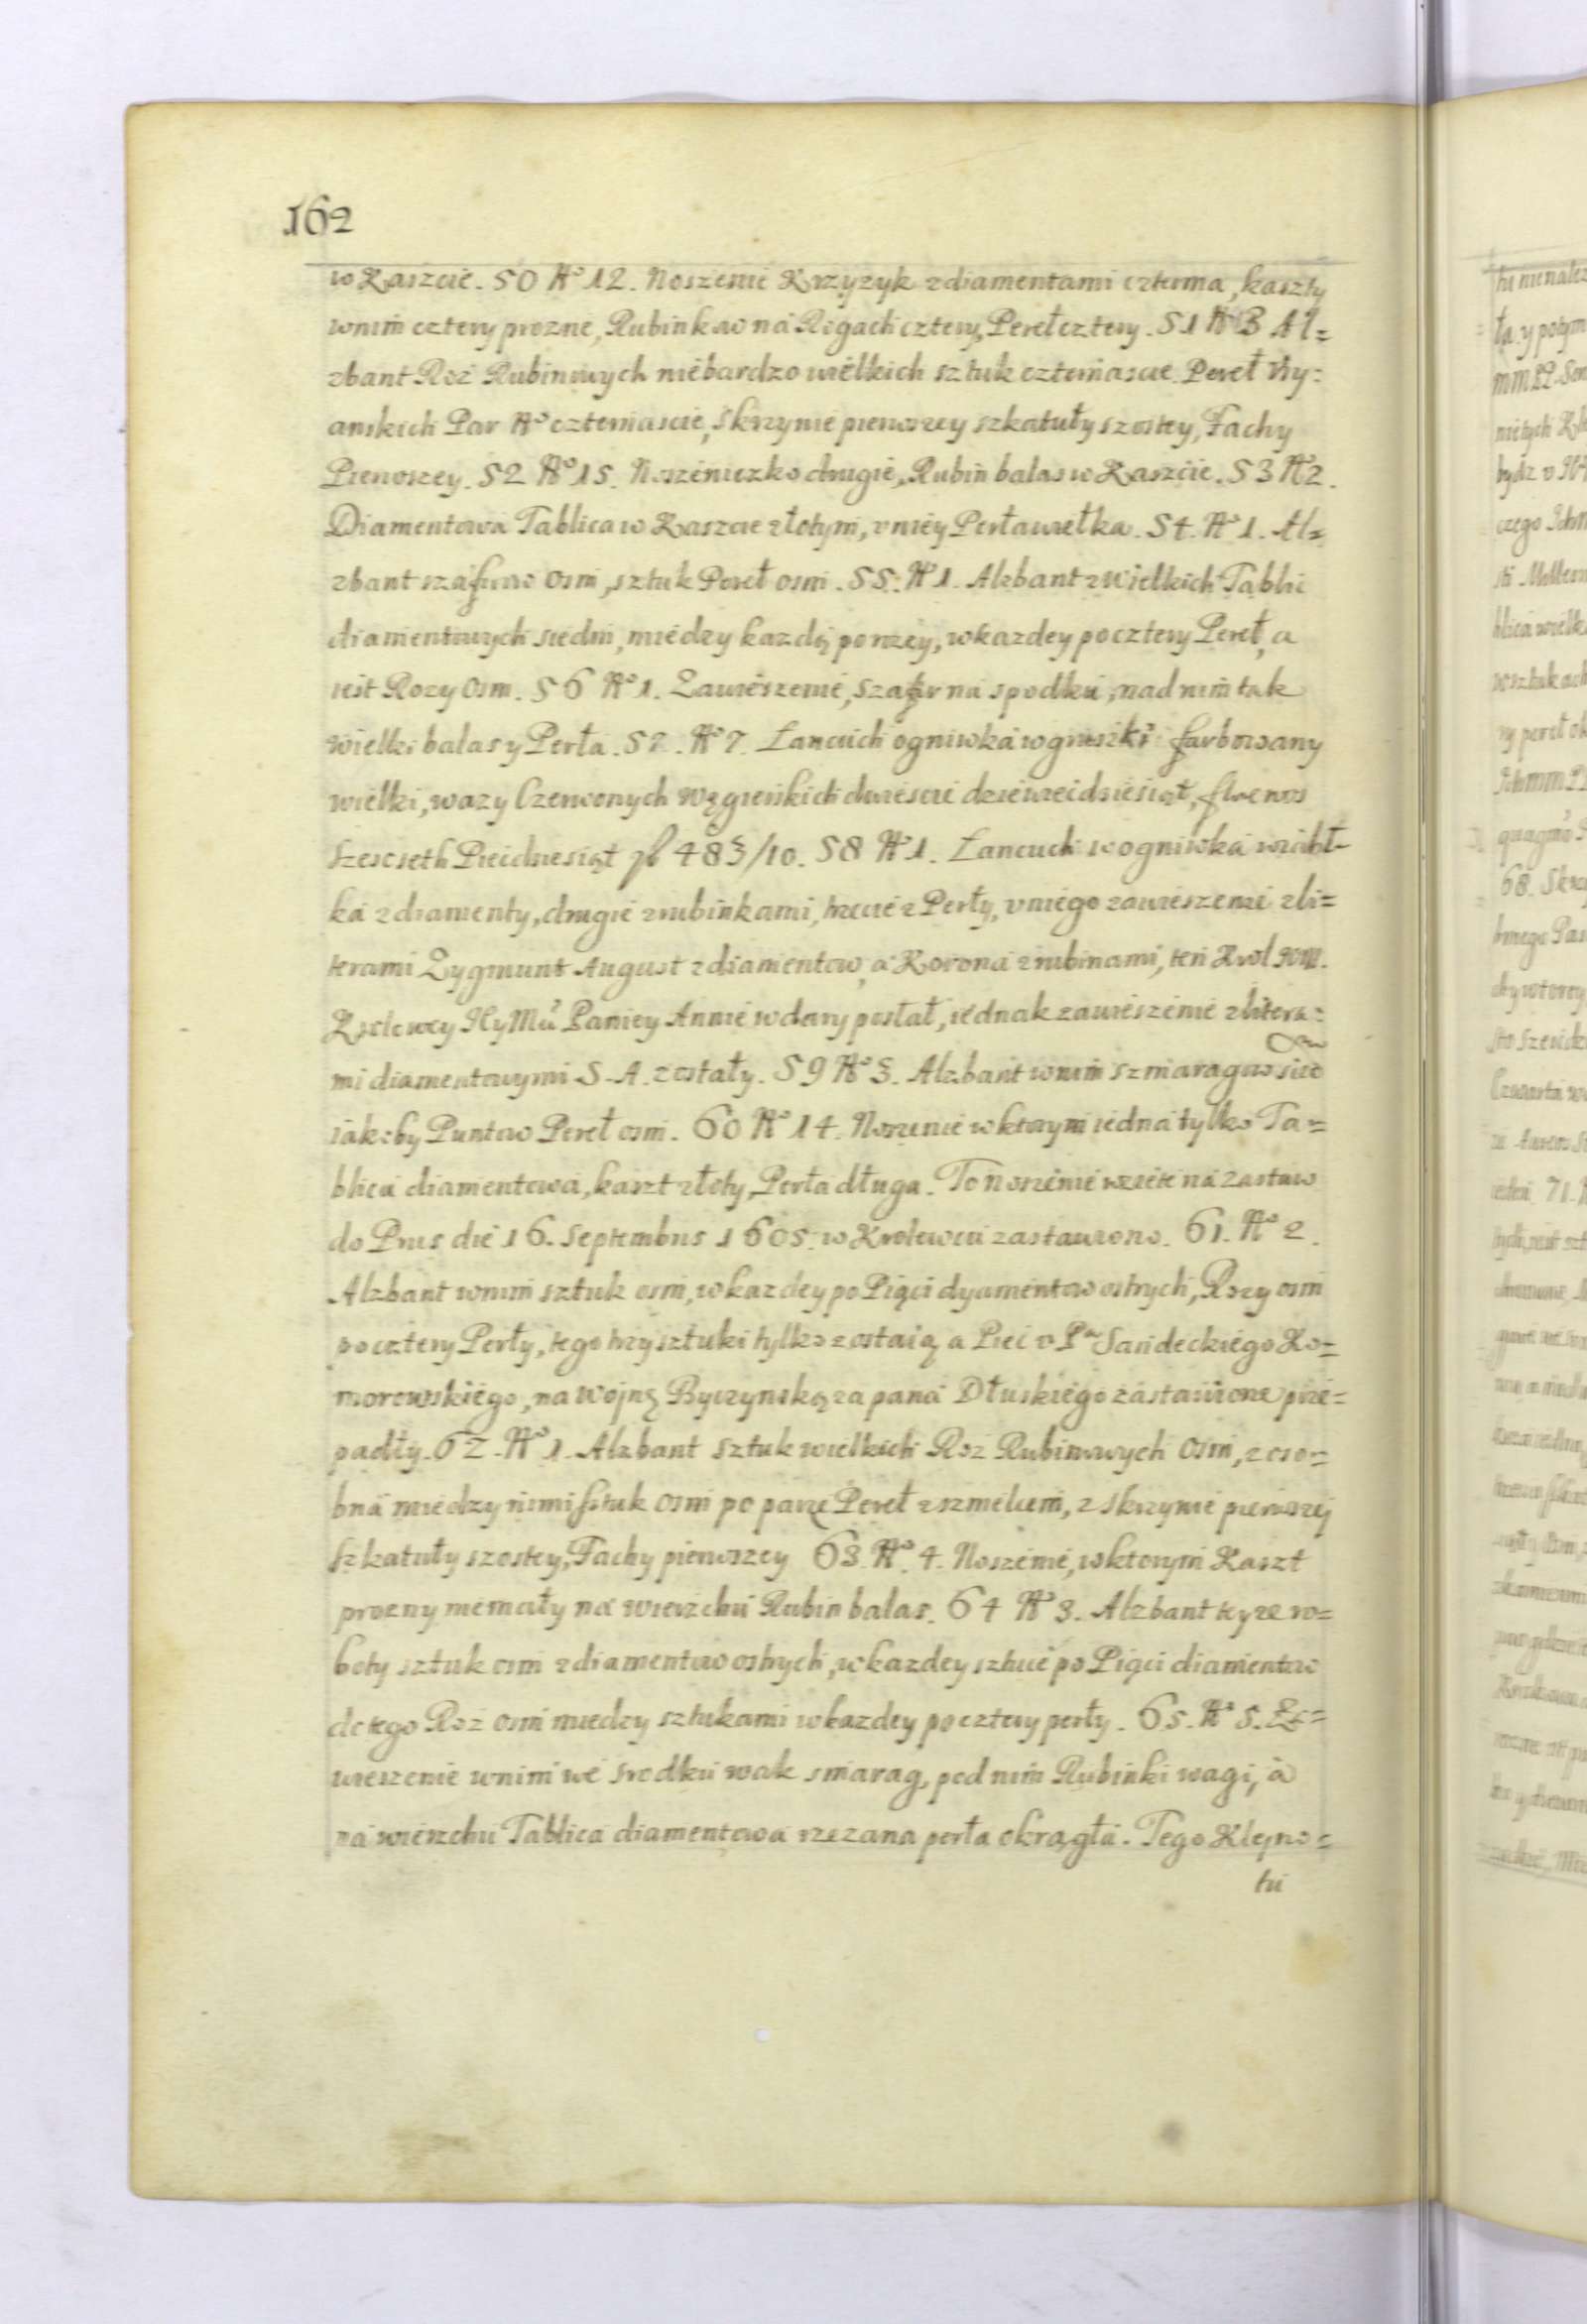 162
w Kaszcie. 50 No 12. Noszenie Krzyzyk z diamentami czterma, kaszty
w nim cztery prozne, Rubinkow na Rogach cztery, Pereł cztery. 51 No 3 Al=
zbant Roż Rubinowych niebardzo wielkich sztuk czternascie Pereł Ury=
anskich Par No czternascie, skrzynie pierwszey szkatuły szostey, Fachy
Pierwszey. 52 No 15. Noszeniczko drugie, Rubin balas w Kaszcie. 53 No 2.
Diamentowa Tablica w Kaszcie złotym, v niey Perła wielka. 54. No 1. Al=
zbant szafirow osm, sztuk Pereł osm. 55. No 1. Alzbant z wielkich Tablic
diamentowych siedm, miedzy kazdą po rozey, w kazdey po cztery Pereł, a
iest Rozy Osm. 56 No 1. Zawieszenie, szafir na spodku, nad nim tak
wielki balas y Perła. 57. No 7. Łancuch ogniwka w gruszki farbowany
wielki, wazy Czerwonych Węgierskich dwiescie dziewiecidziesiąt, floenos
szescseth Pieicdziesiąt 483/10. 58 No 1. Łancuch w ogniwka wiabł-
ka z diamenty, drugie z rubinkami, trzecie z Perły, v niego zawieszenie z li=
terami Zygmunt August z diamentow, a Korona z rubinami, ten Krol
Krolewey Hy Mci Paniey Annie w dary posłał, iednak zawieszenie z litera=
mi diamentowymi S. A. zostały. 59 No 3. Alzbant w nim szmaragow siedm
iakoby Puntow Pereł osm. 60 No 14. Noszenie w ktorym iedna tylko Ta=
blica diamentowa, kaszt złoty, Perła długa. To noszenie wzięte na zastaw
do Prus die 16. Septembris 1605. w Krolewcu zastawiono. 61. No 2.
Alzbant w nim sztuk osm, w kazdey po Piąci dyamentow ostrych, Rozy osm
po cztery Perły, tego trzy sztuki tylko zostaią a Pieć v Pa Sandeckiego Ko=
morowskiego, na wojnę Byczynską za pana Dłuskiego zastawione prze=
padły. 62. No 1. Alzbant sztuk wielkich Roż Rubinowych osm, z oso=
bna miedzy nimi sztuk osm po parze Pereł z szmelcem, z skrzynie pierwszej
szkatuły szostey, Fachy pierwszey 63. No. 4. Noszenie, w ktorym Kaszt
prozny niemały na wierzchu Rubin balas. 64 No 3. Alzbant teyze ro=
boty sztuk osm z diamentow ostrych, w kazdey sztuce po Piąci diamentow
do tego Roż osm miedzy sztukami w kazdey po cztery perły. 65. No 5. Za=
wieszenie w nim we srodku wak smarag, pod nim Rubinki wagi, a
na wierzchu Tablica diamentowa rzezana perła okrągła. Tego Klejno=
tu